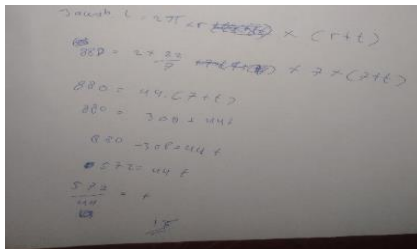 = 2π × r × (r+t)
880 = 2 × 22/7 × 7 × (7+t)
880 = 44 (7+t)
880 = 308 + 44t
880 - 308 = 44 t
572 = 44 t
572/44 = t
13